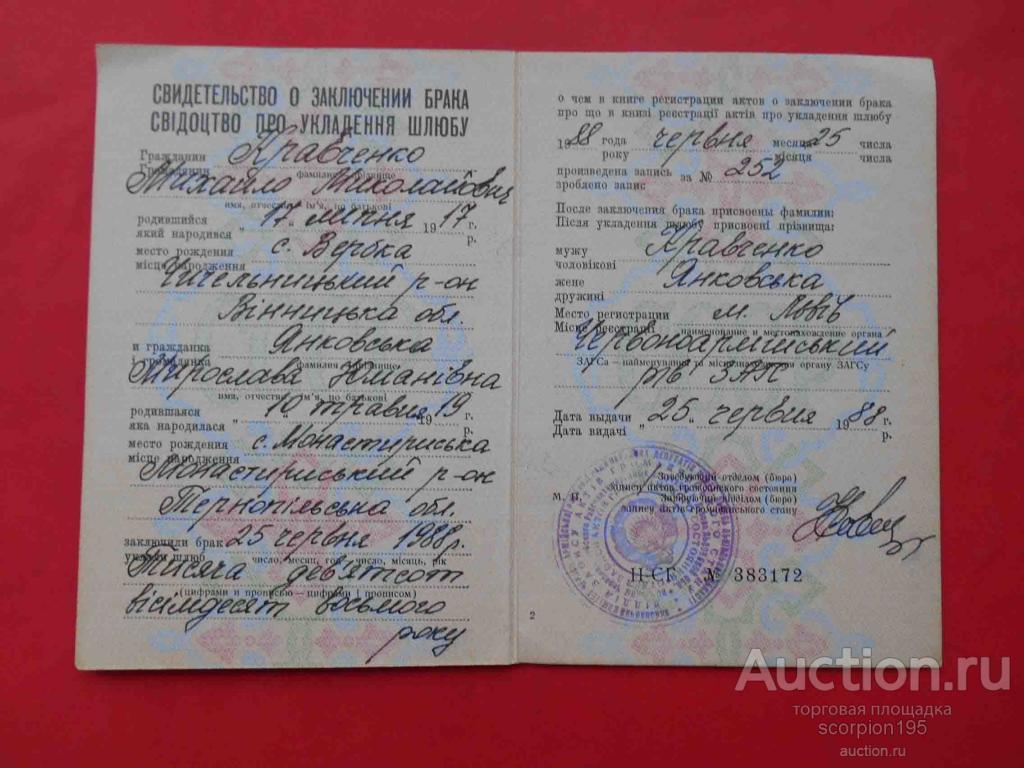 СВИДЕТЕЛЬСТВО О ЗАКЛЮЧЕНИИ БРАКА
СВІДОЦТВО ПРО УКЛАДЕННЯ ШЛЮБУ
Гражданин Кравченко
Громадянин
фамилия, прізвище
Михайло Миколайович
имя, отчество, ім'я, по батькові
родившийся
який народився „ 17 „ липня 1917 г.
р.
место рождения с. Вербка
місце народження
Чечельницький р-он
Вінницька обл.
и гражданка Янковська
і громадянка
фамилия, прізвище
Мирослава
имя, отчество, ім'я, по батькові
родившаяся
яка народилася „ 10 „ травня 1919 г.
р.
место рождения с. Монастириська
місце народження
Монастириський р-он
Тернопільська обл.
заключили брак 25 червня 1988р.
уклали шлюб
число, месяц, год, число, місяць, рік
Тисяча дев'ятсот
(цифрами и прописью — цифрами і прописом)
вісімдесят восьмого
року
о чем в книге регистрации актов о заключении брака
про що в книзі реєстрації актів про укладення шлюбу
1988 года червня месяца 25 числа
року місяця числа
произведена запись за № 252
зроблено запис
После заключения брака присвоены фамилии:
Після укладення шлюбу присвоєні прізвища:
мужу Кравченко
чоловікові
жене Янковська
дружині
Место регистрации м. Львів
Місце реєстрації
наименование и местонахождение органа
Червоноармійський
ЗАГСа – найменування та місцезнаходження органу ЗАГСу
р/в ЗАГС
Дата выдачи „ 25 „ червня 1988 г.
Дата видачі р.
Заведующий отделом (бюро)
записи актов гражданского состояния
М. П. Завідуючий відділом (бюро)
запису актів громадянського стану
II-СГ № 383172
2
Auction.ru
торговая площадка
scorpion195
auction.ru